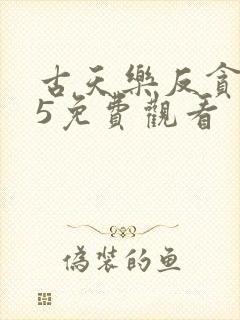 古天樂反貪
5免費觀看
偽裝的鱼